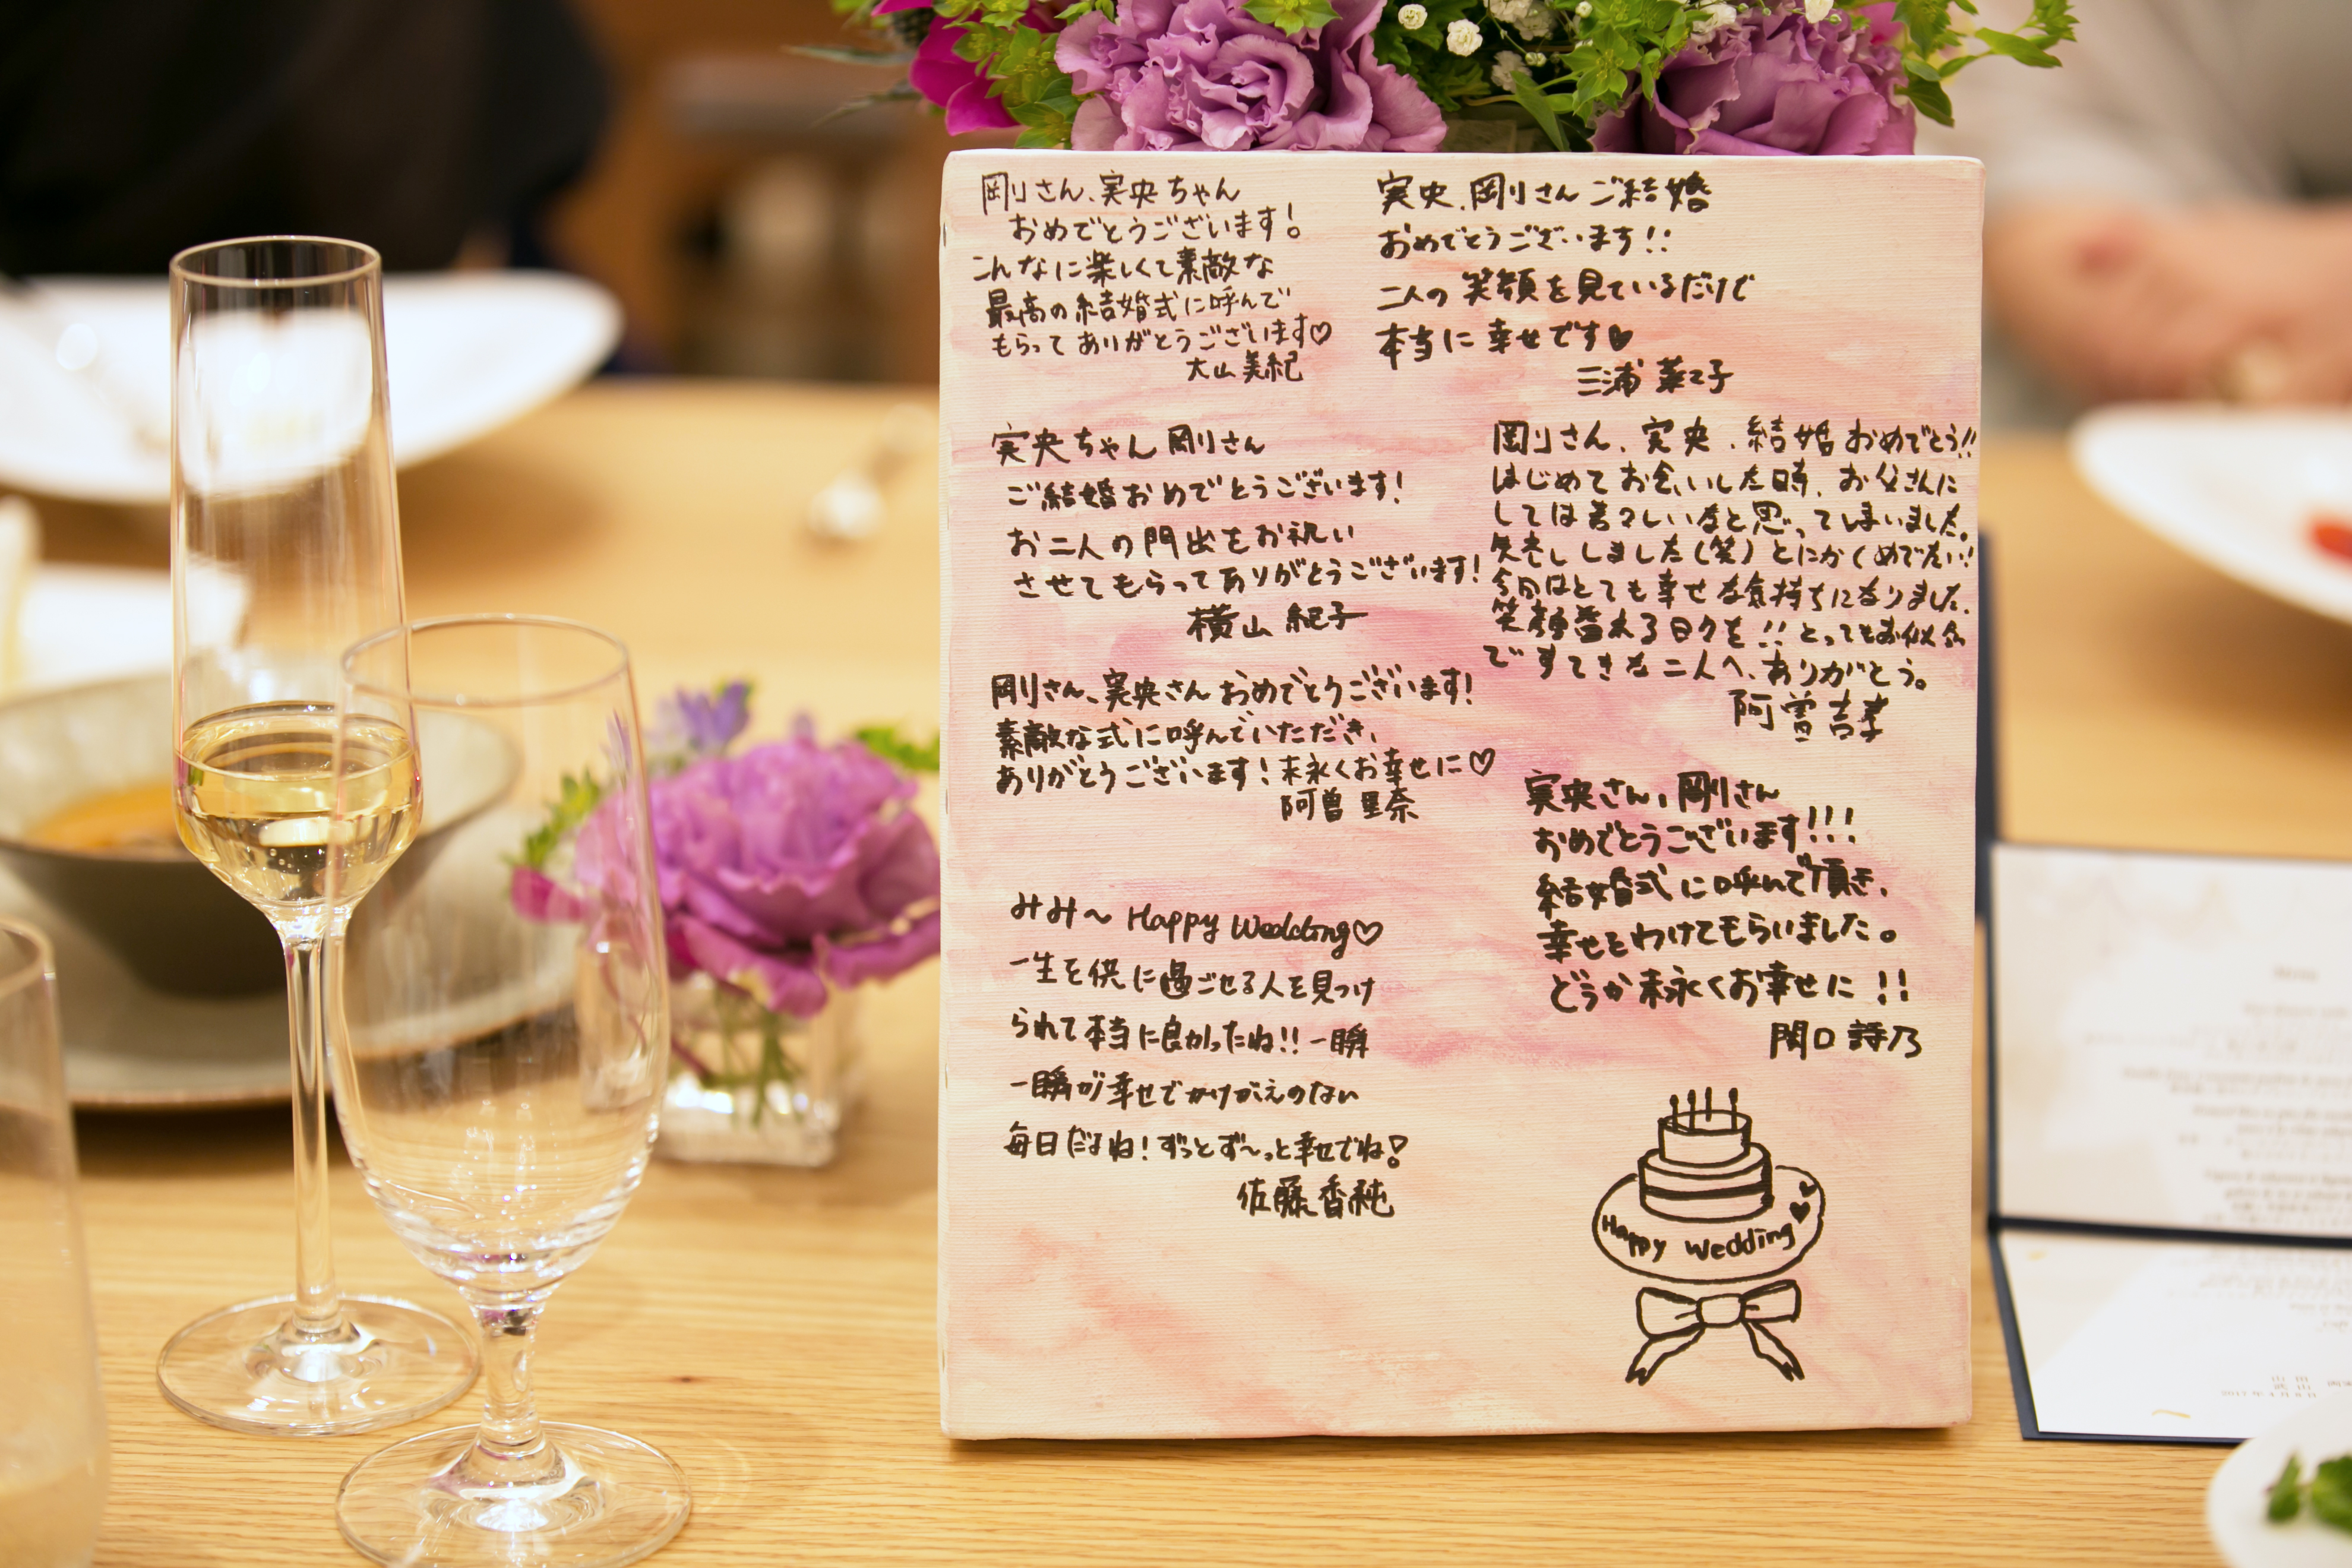 剛さん、実央ちゃん
おめでとうございます！
こんなに楽しくて素敵な
最高の結婚式に呼んで
もらってありがとうございます♡
大山美紀
実央ちゃん剛さん
ご結婚おめでとうございます！
お二人の門出をお祝い
させてもらってありがとうございます！
横山 紀子
剛さん、実央さんおめでとうございます！
素敵な式に呼んでいただき、
ありがとうございます！末永くお幸せに♡
阿曽 里奈
みみ〜 Happy Wedding♡
一生を供に過ごせる人を見つけ
られて本当に良かったね!! 一瞬
一瞬が幸せでかけがえのない
毎日だよね！ずっとず〜っと幸せでね！
佐藤香純
実央、剛さんご結婚
おめでとうございます!!
二人の笑顔を見ているだけで
本当に幸せです♥
三浦菜々子
剛さん、実央、結婚おめでとう!!
はじめてお会いした時、お父さんに
しては若々しいなと思ってしまいました。
失礼しました（笑）とにかくめでたい！
今日はとても幸せな気持ちになりました。
笑顔溢れる日々を!! とってもお似合
ですてきな二人へ、ありがとう。
阿曽
実央さん、剛さん
おめでとうございます!!!
結婚式に呼んで頂き、
幸せをわけてもらいました。
どうか末永くお幸せに!!
関口 詩乃
Happy Wedding